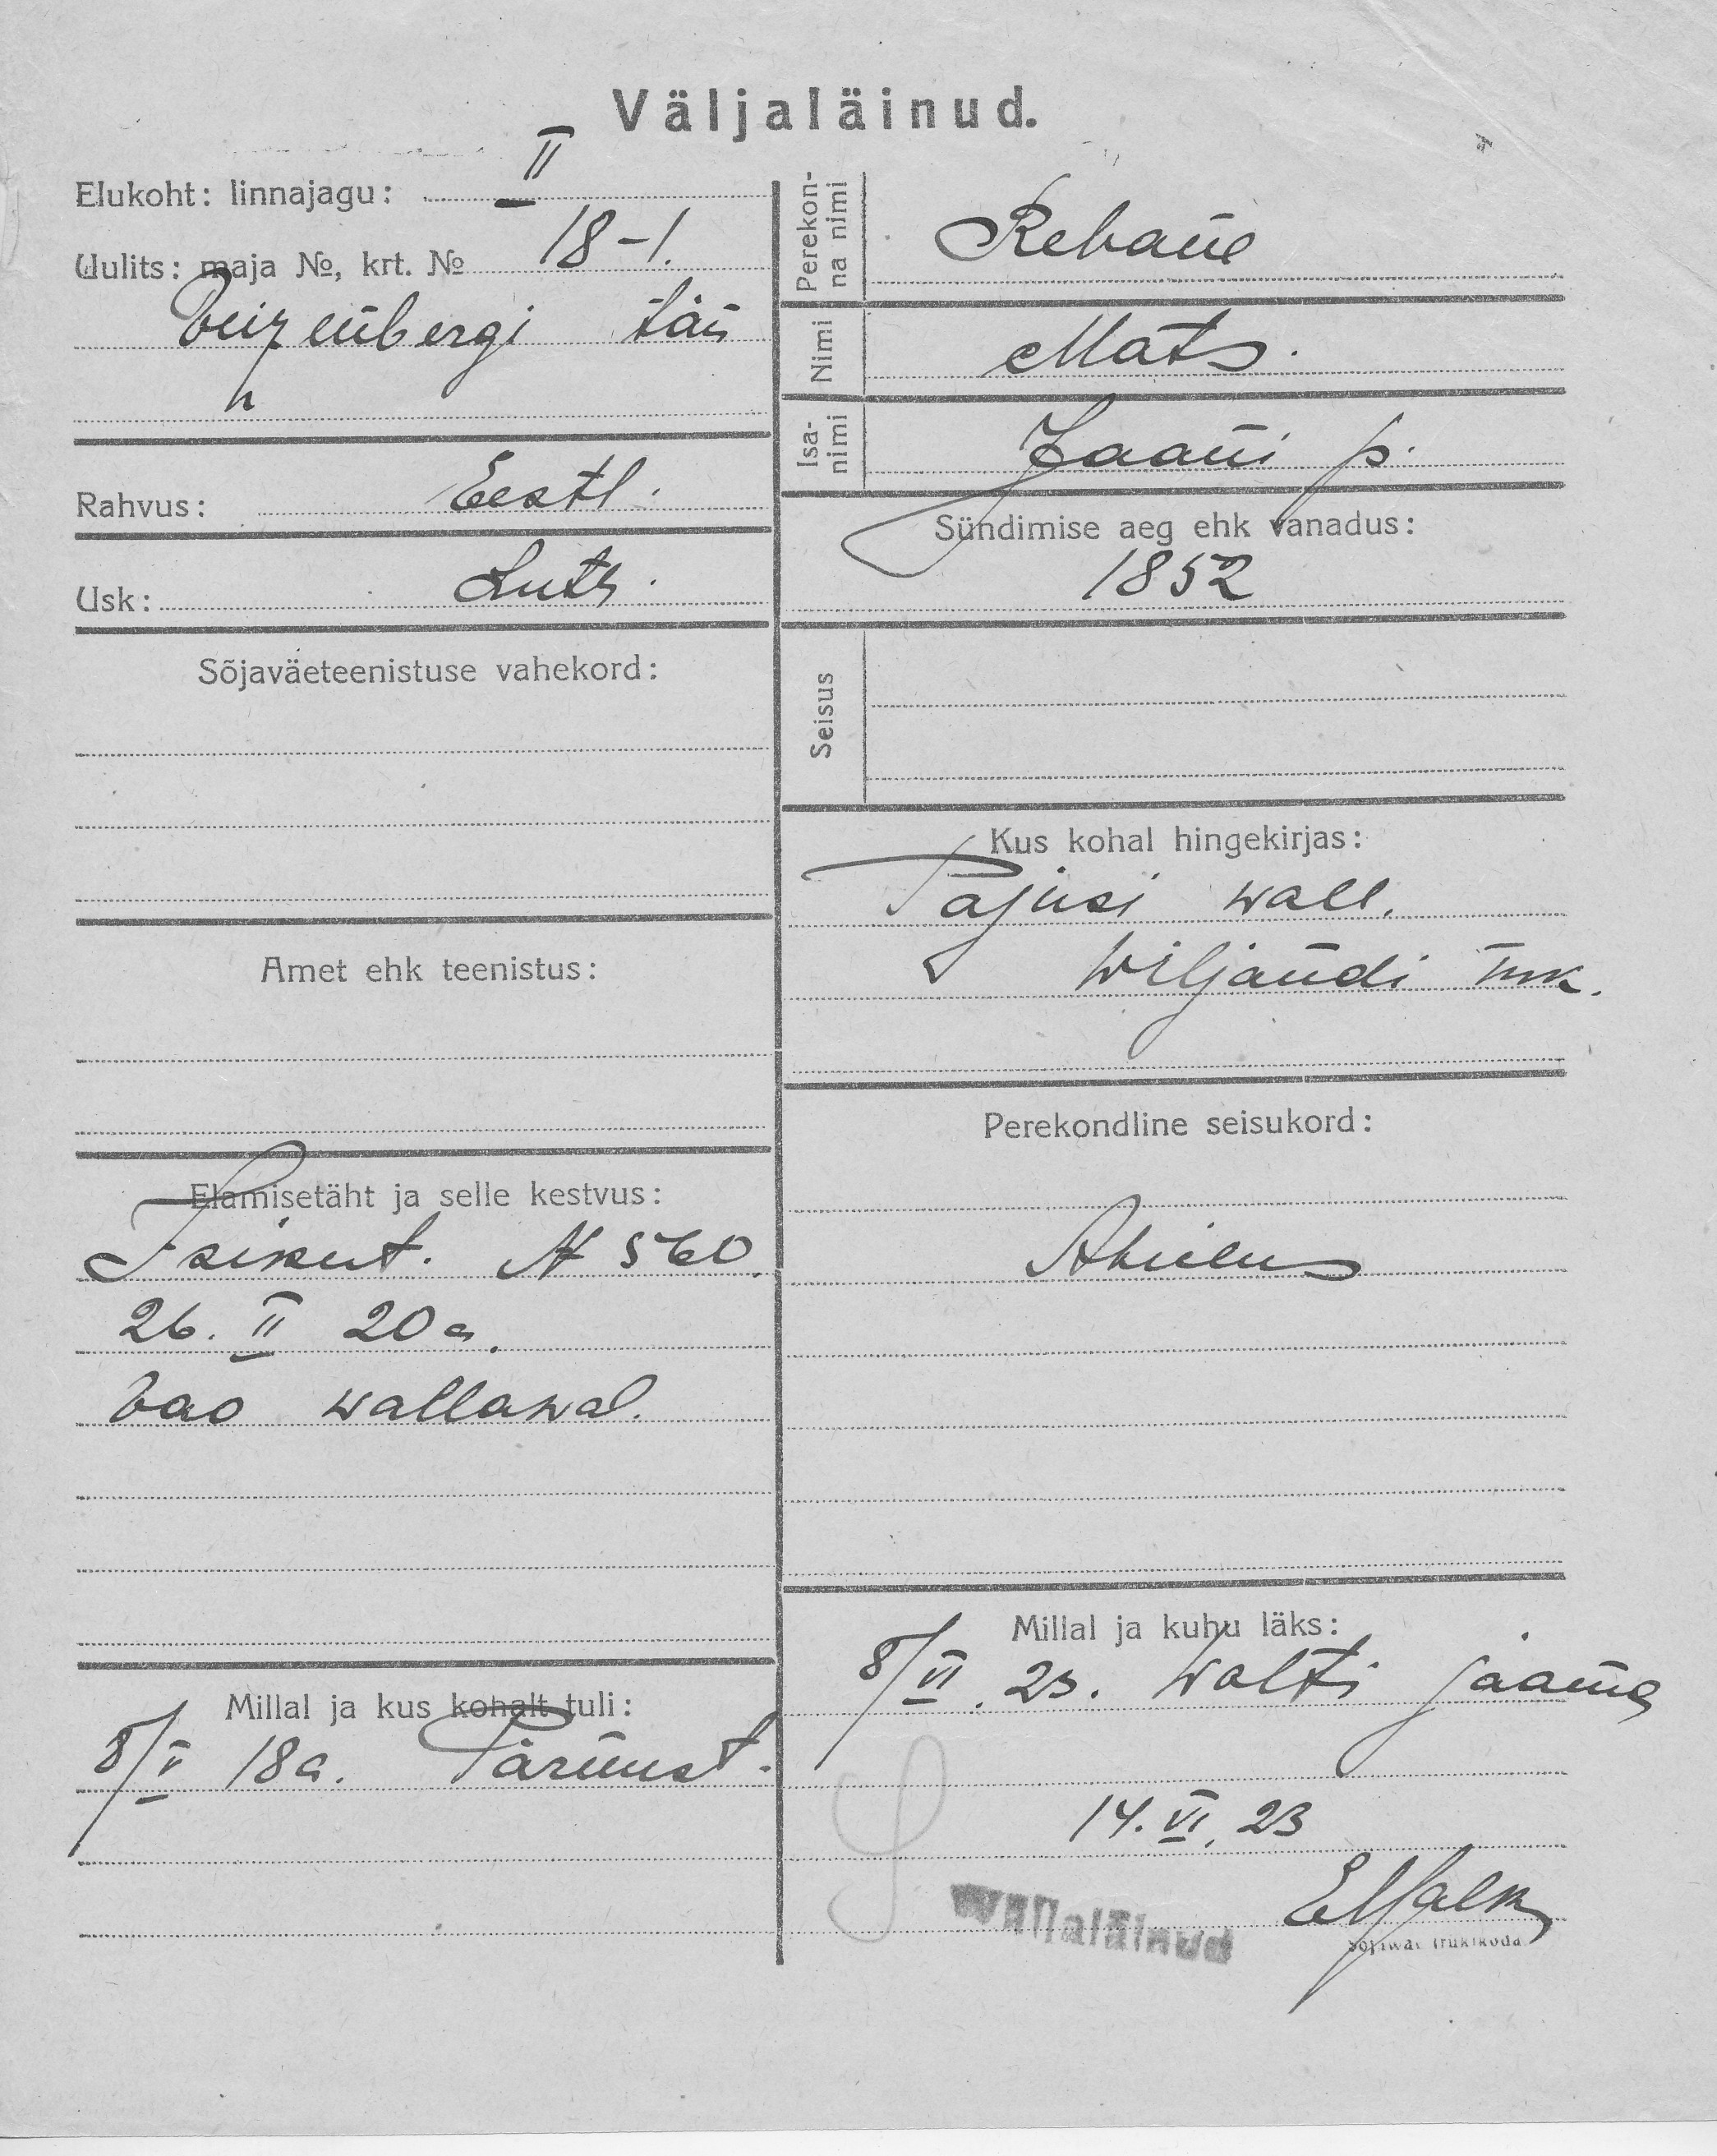 Väljaläinud.
Elukoht: linnajagu: II
Uulits: maja №, krt. № 18-1.
Veizenbergi tän
Rahvus: Eestl.
Usk: Luth.
Sõjaväeteenistuse vahekord:
Amet ehk teenistus:
Elamisetäht ja selle kestvus:
Isikut. N 560.
26. II 20 a.
Vao wallawal.
Millal ja kus kohalt tuli:
8/V 18a. Pärnust.
Perekonna nimi Rebane
Nimi Mats.
Isanimi Jaani p.
Sündimise aeg ehk vanadus:
1852
Seisus
Kus kohal hingekirjas:
Pajusi wall.
Wiljandi mk.
Perekondline seisukord:
Abielus
Millal ja kuhu läks:
8/VI. 23. Waldi jaama
14. VI. 23
Wäljaläinud
Sõjawäe trükikoda